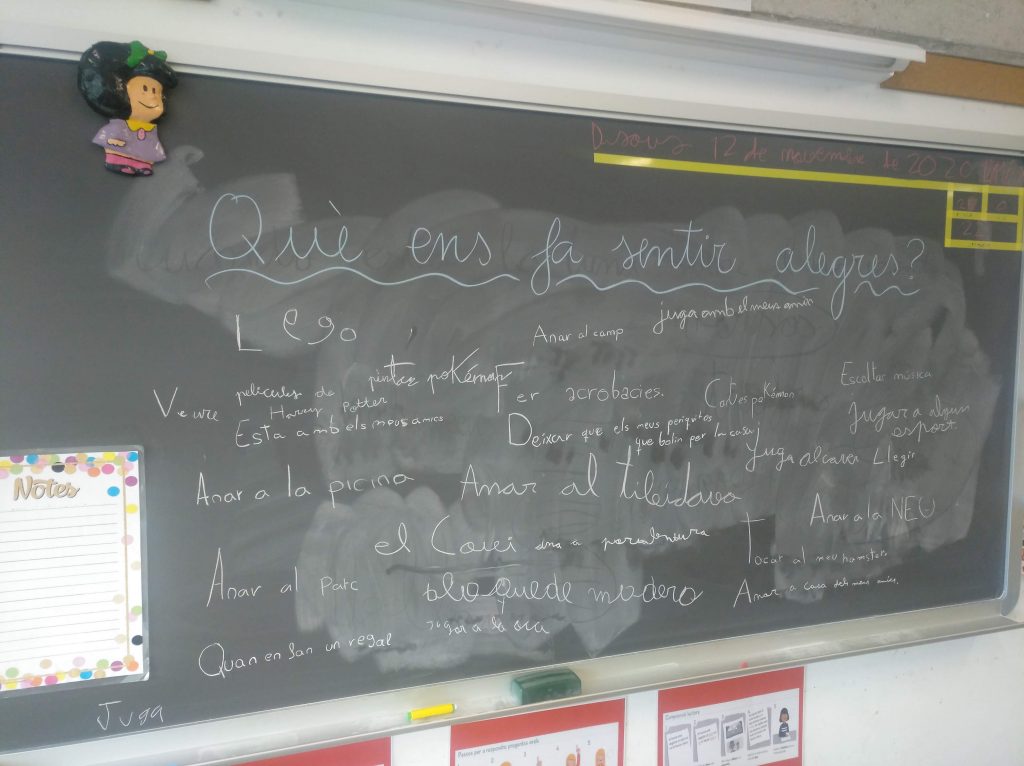 Dijous 12 de novembre de 2020
Què ens fa sentir alegres?
Lego
Anar al camp
juga amb el meus amics
Veure películes de Harry Potter
pintar poKémon
Fer acrobacies.
Cartes poKémon
Escoltar música
Esta amb els meus amics
Deixar que els meus periquitos
que bolin per la casa
Jugar a algun
esport.
Juga al cava
Llegir
Anar a la picina
Anar al tibidavo
Anar a la NEU
el Covei
Tocar al meu hamster
Anar al Parc
bloquede madera
Anar a casa dels meus amics.
Jugar a la oca
Quan en fan un regal
Juga
Notes
Passos per a respondre preguntes orals
Comprensió lectora